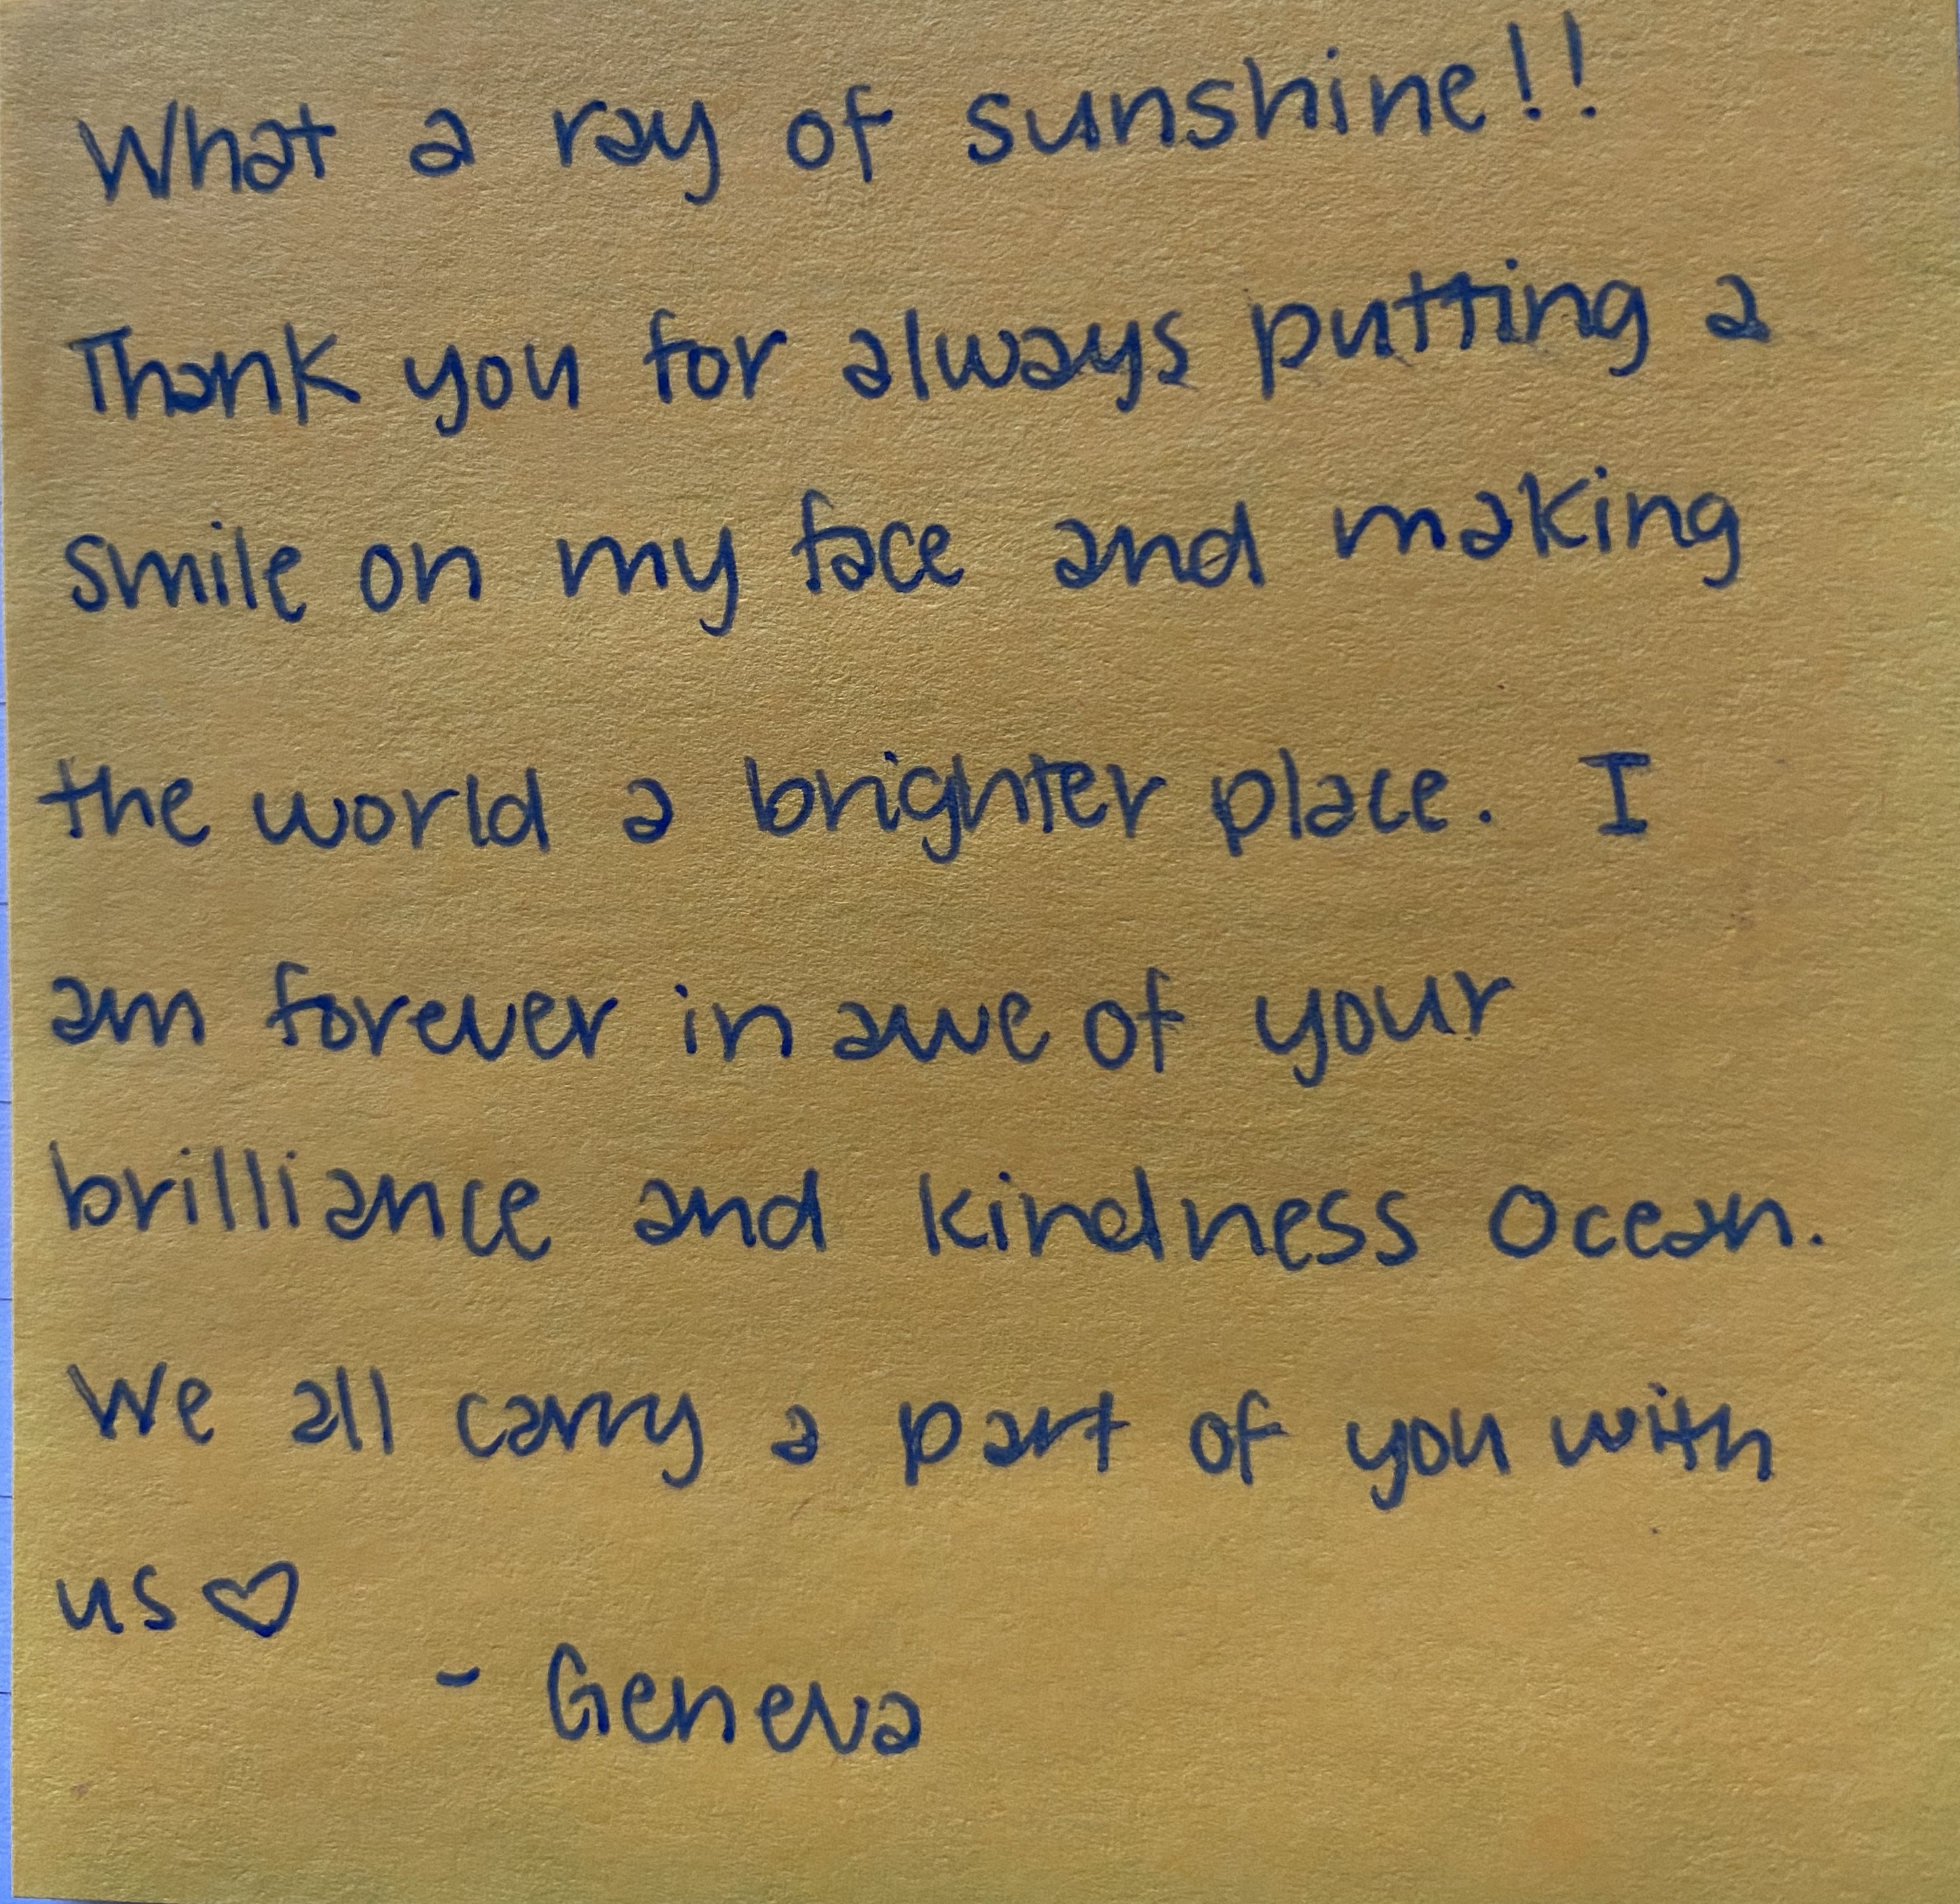 What a ray of sunshine!!
Thank you for always putting a
smile on my face and making
the world a brighter place. I
am forever in awe of your
brilliance and kindness Ocean.
We all carry a part of you with
us♡
- Geneva